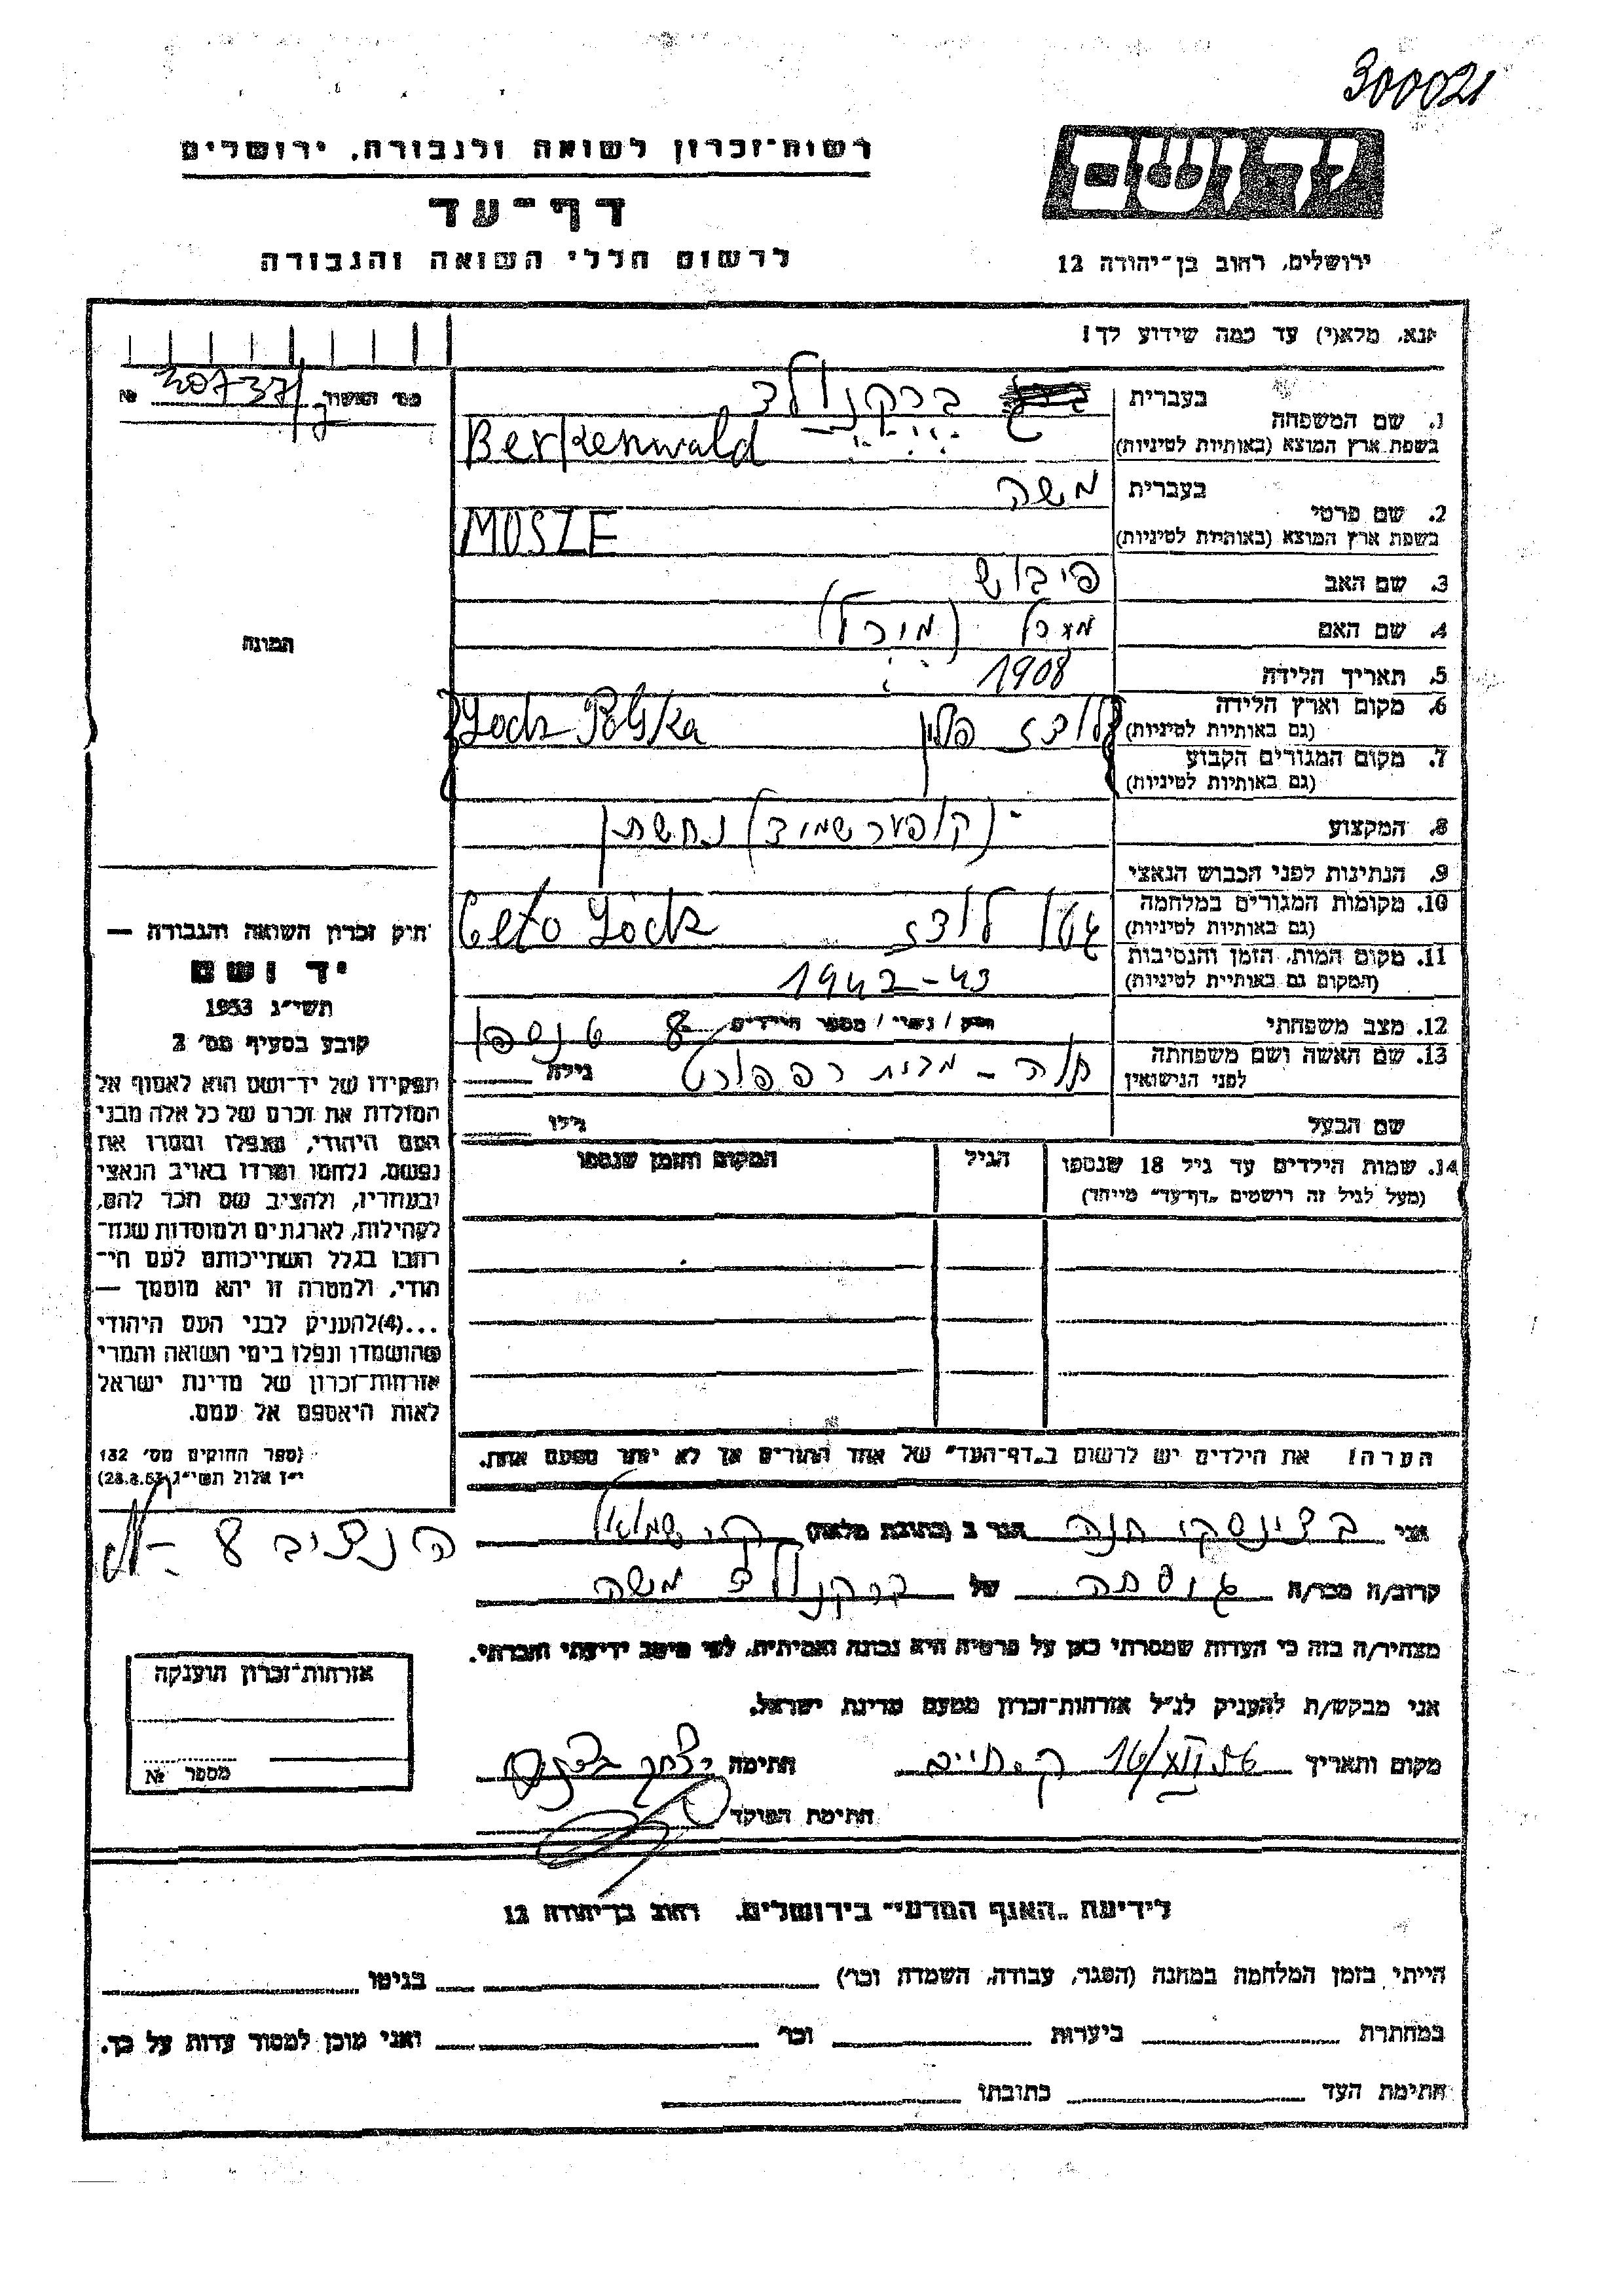 300021
רשות־זכרון לשואה ולגבורה, ירושלים
יד ושם
דף־עד
לרשום חללי השואה והגבורה
ירושלים, רחוב בן־יהודה 12
נא, מלא(י) עד כמה שידוע לך!
מס' האשור 307371 №
1. שם המשפחה בעברית ברקנולד
בשפת ארץ המוצא (באותיות לטיניות) Berkenwald
2. שם פרטי בעברית משה
בשפת ארץ המוצא (באותיות לטיניות) MOSZE
3. שם האב פיבוש
4. שם האם (מיכל)
5. תאריך הלידה 1908
6. מקום וארץ הלידה (גם באותיות לטיניות) לודז פולין Lodz Polska
7. מקום המגורים הקבוע (גם באותיות לטיניות)
8. המקצוע (קופערשמיד) נחשתן
9. הנתינות לפני הכבוש הנאצי
10. מקומות המגורים במלחמה (גם באותיות לטיניות) גטו לודז Geto Lodz
11. מקום המות, הזמן והנסיבות (המקום גם באותיות לטיניות) 1942-43
12. מצב משפחתי רוק / נשוי / מספר הילדים 8
13. שם האשה ושם משפחתה לפני הנישואין רפפורט גילה
שם הבעל גילו
14. שמות הילדים עד גיל 18 שנספו (מעל לגיל זה רושמים „דף־עד" מיוחד)
הגיל
המקום והזמן שנספו
הערה! את הילדים יש לרשום ב„דף־העד" של אחד ההורים אך לא יותר מפעם אחת.
תמונה
חוק זכרון השואה והגבורה —
יד ושם
תשי"ג 1953
קובע בסעיף מס' 2
תפקידו של יד־ושם הוא לאסוף אל
המולדת את זכרם של כל אלה מבני
העם היהודי, שנפלו ומסרו את
נפשם, נלחמו ומרדו באויב הנאצי
ובעוזריו, ולהציב שם וזכר להם,
לקהילות, לארגונים ולמוסדות שנח־
רבו בגלל השתייכותם לעם הי־
הודי, ולמטרה זו יהא מוסמך —
...(4) להעניק לבני העם היהודי
שהושמדו ונפלו בימי השואה והמרי
אזרחות־זכרון של מדינת ישראל
לאות היאספם אל עמם.
(ספר החוקים מס' 132
י"ז אלול תשי"ג 28.8.53)
אני חנה הגר ב (כתובת מלאה) ק. שמואל הנציב 8
קרוב/ה מכר/ה גיסתה של ברקנולד משה
מצהיר/ה בזה כי העדות שמסרתי כאן על פרטיה היא נכונה ואמיתית, לפי מיטב ידיעתי והכרתי.
אני מבקש/ת להעניק לנ"ל אזרחות־זכרון מטעם מדינת ישראל.
מקום ותאריך ק. חיים 16/XII 56 חתימה
חתימת הפוקד
אזרחות־זכרון הוענקה
מספר №
לידיעת „האגף המדעי" בירושלים. רחוב בן־יהודה 12
הייתי בזמן המלחמה במחנה (הסגר, עבודה, השמדה וכר') בגיטו
במחתרת ביערות וכר' ואני מוכן למסור עדות על כך.
חתימת העד כתובתו